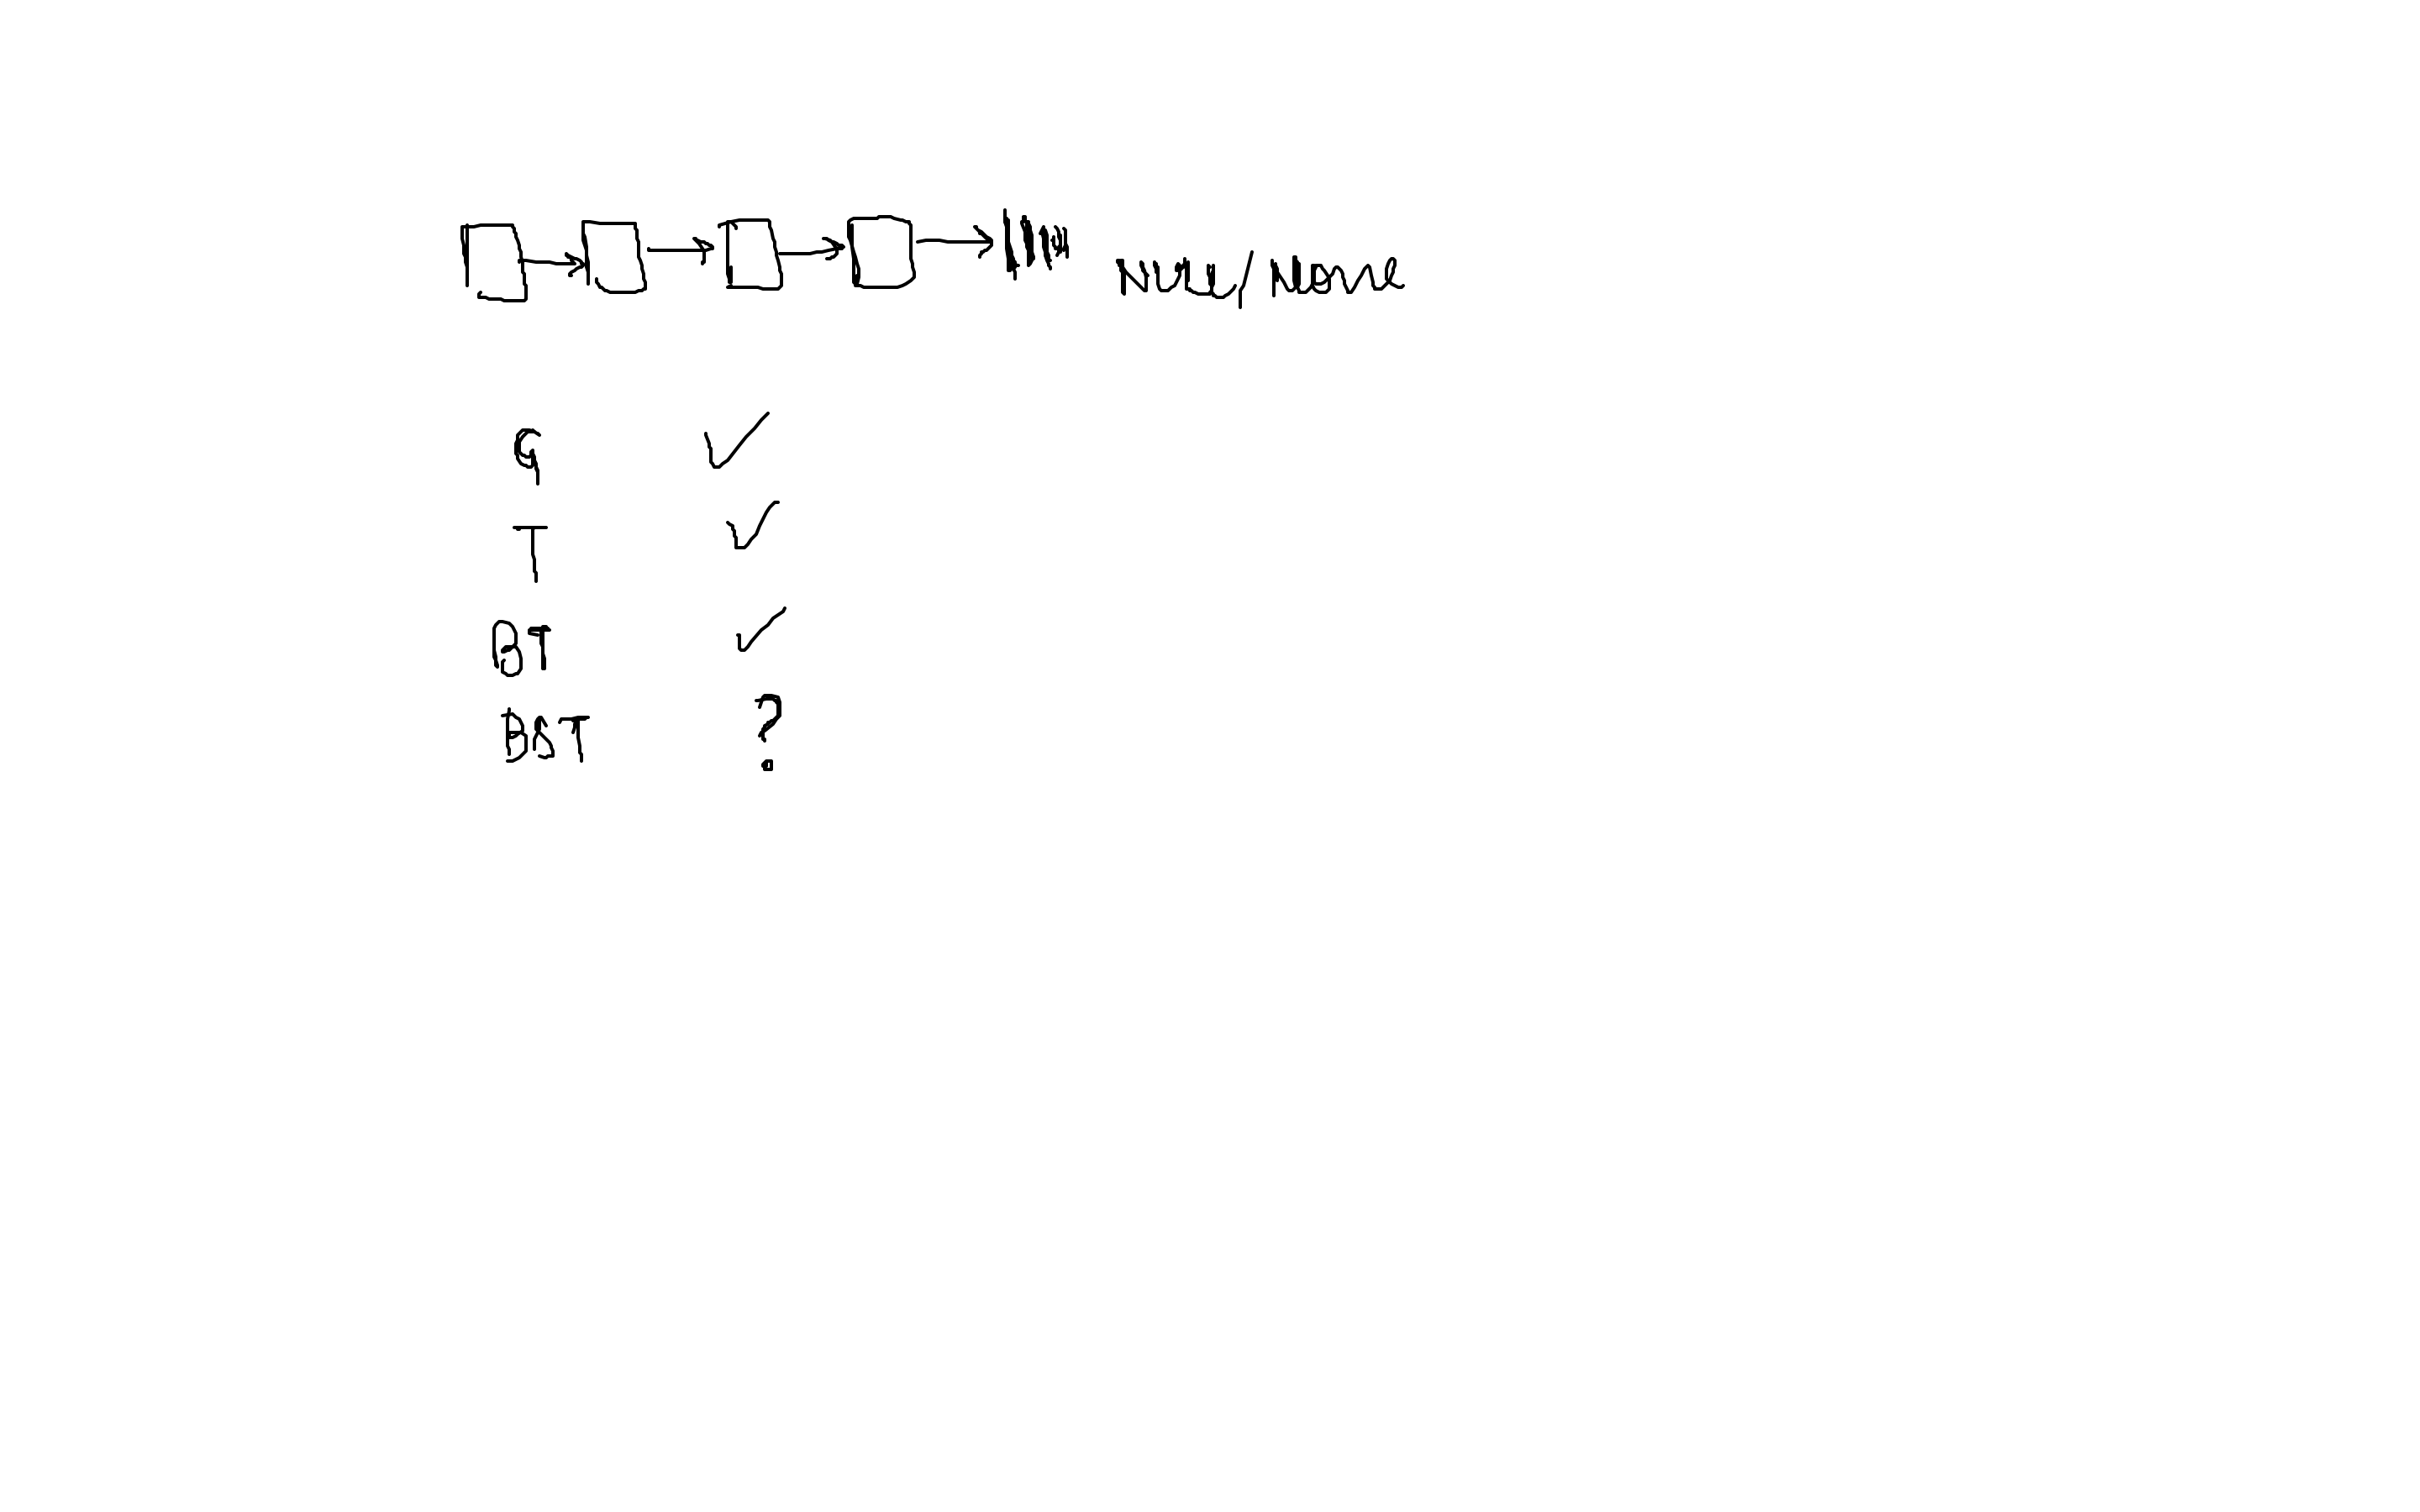 Null/None
G ✓
T ✓
BT ✓
BST ?